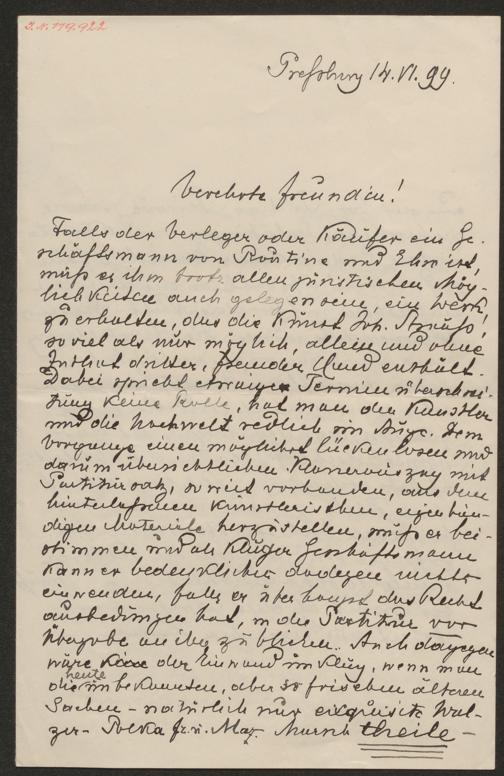 I.N. 179.922
Preßburg 14. VI. 99.
Verehrte Freundin!
Falls der Verleger oder Käufer ein Ge-
schäftsmann von Routine und Ehre ist,
muß es ihm trotz allen juristischen Mög-
lichkeiten auch gelegen sein, ein Werk
zu erhalten, das die Kunst Joh. Strauß'
so viel als nur möglich, allein und ohne
Zuthat dritter, fremder Hand enthält.
Dabei spricht etwaige Termin überschrei-
tung keine Rolle, hat man den Künstler
und die Nachwelt redlich im Auge. Dem
vorgange einen möglichst lückenlosen und
darum übersichtlichen Klavierauszug mit
Partitursatz, so weit vorhanden, aus dem
hinterlaßenen künstlerischen, eigenhän-
digen Materiale herzustellen, muß er bei-
stimmen und als kluger Geschäftsmann
kann er bedenkliches dagegen nichts
einwenden, falls er überhaupt das Recht
ausbedungen hat, in die Partitur vor
Übergabe an ihn zu blicken. Auch dagegen
wäre der Einwand unklug, wenn man
die heute unbekannten, aber so frischen älteren
Sachen – natürlich nur exquisite Wal-
zer- Polka fr. u. Maz. Marsch theile –